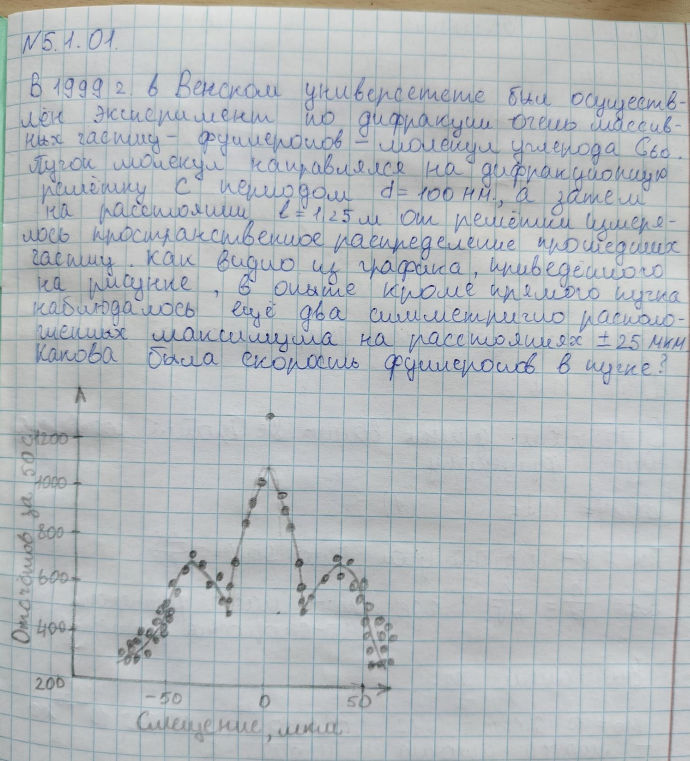 N5.1.01.
В 1999 г в Венском университете был осуществ-
лён эксперимент по дифракции очень массив-
ных частиц - фуллеренов - молекул углерода C60.
Пучок молекул направлялся на дифракционную
решётку с периодом d = 100 нм, а затем
на расстоянии l = 1,25 м от решётки измеря-
лось пространственное распределение прошедших
частиц. Как видно из графика, приведённого
на рисунке, в опыте кроме прямого пучка
наблюдалось ещё два симметрично располо-
женных максимума на расстояниях ± 25 мкм
Какова была скорость фуллеренов в пучке?
Отсчётов за 50 с
1200
1000
800
600
400
200
-50 0 50
Смещение, мкм